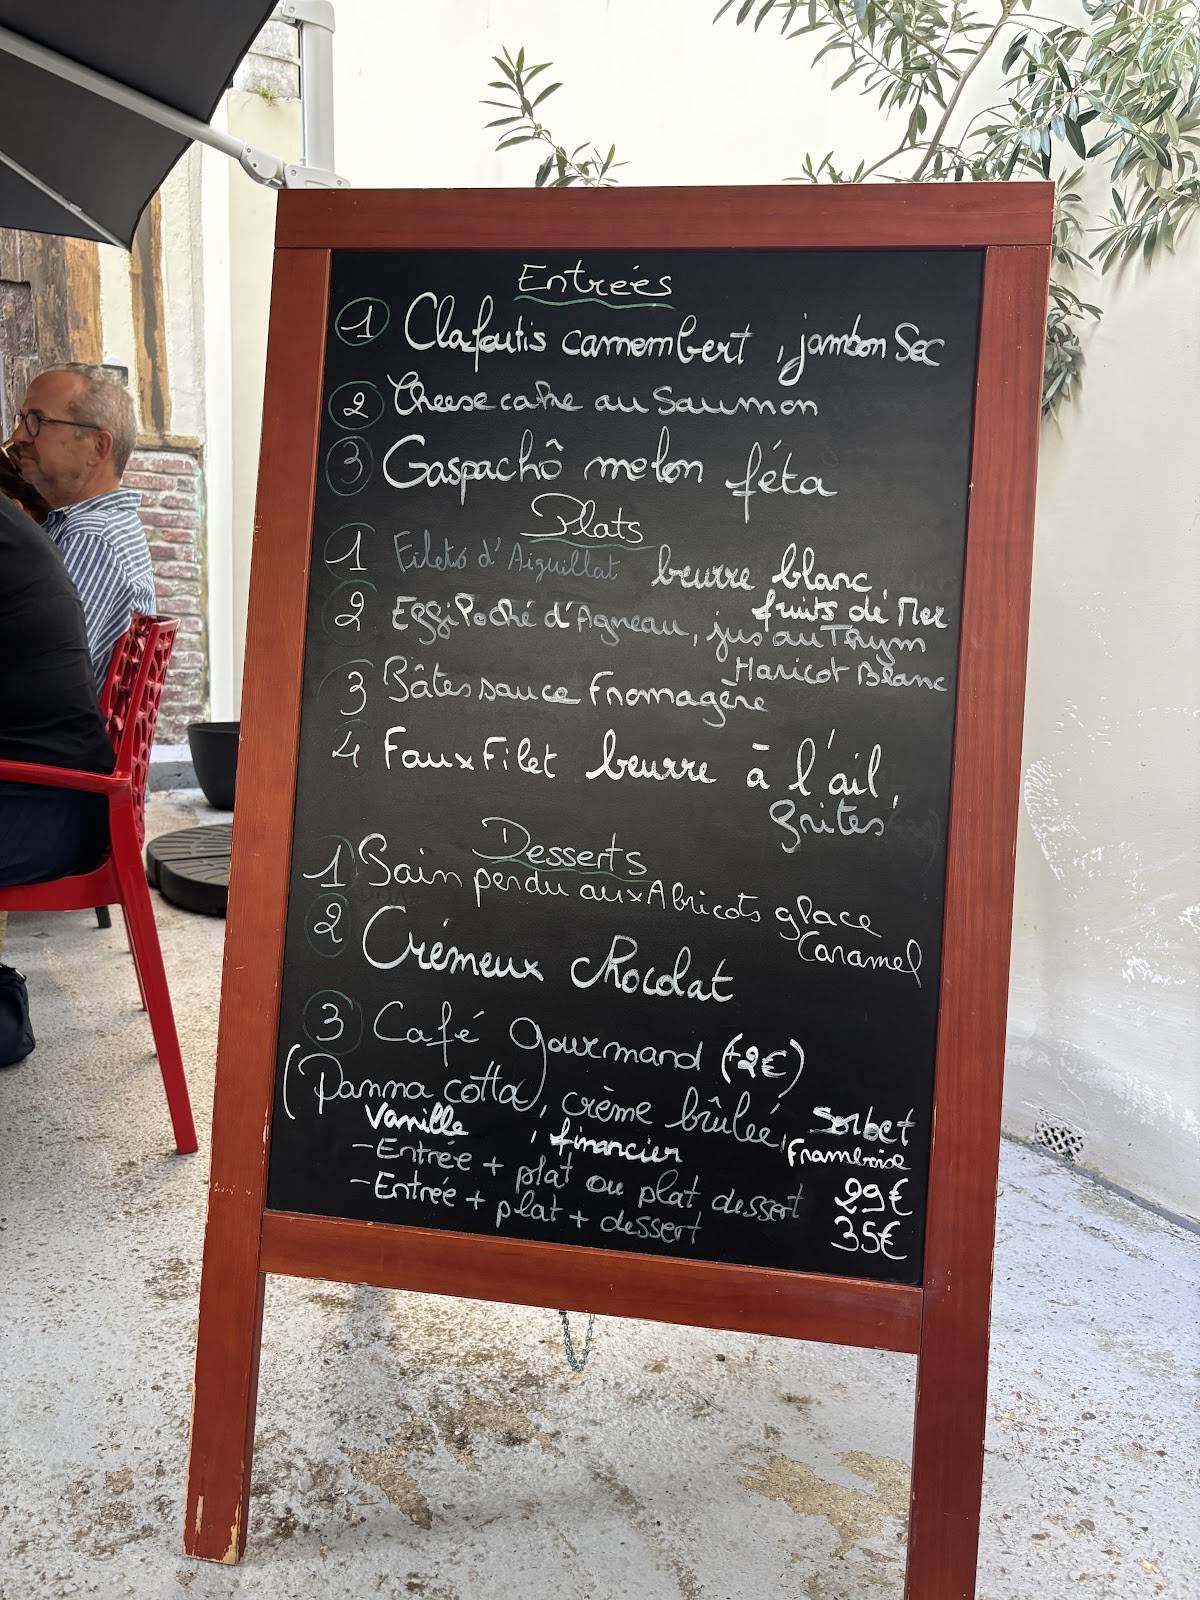 Entrées
1 Clafoutis camembert, jambon Sec
2 Cheesecake au Saumon
3 Gaspachô melon féta
Plats
1 Filets d'Aiguillat beurre blanc,
fruits de Mer
2 Poché d'Agneau, jus au Thym
Haricot Blanc
3 Pâtes sauce Fromagère
4 Faux Filet beurre à l'ail,
frites
Desserts
1 Pain perdu aux Abricots glace
Caramel
2 Crémeux chocolat
3 Café Gourmand (+2€)
(Panna cotta), crème brûlée, Sorbet
Vanille, financier Framboise
- Entrée + plat ou plat, dessert 29€
- Entrée + plat + dessert 35€